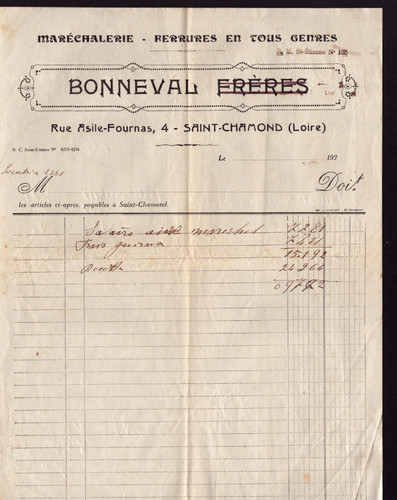 MARÉCHALERIE - FERRURES EN TOUS GENRES
R. M. St-Étienne Nº 165
BONNEVAL FRÈRES
Rue Asile-Fournas, 4 - SAINT-CHAMOND (Loire)
R. C. Saint-Etienne Nº 4253-4254
Le 192
M Doit
les articles ci-après, payables à Saint-Chamond.
Salaire aide marechal 7 281
Frais 7 411
15.192
Recette 24 964
09772